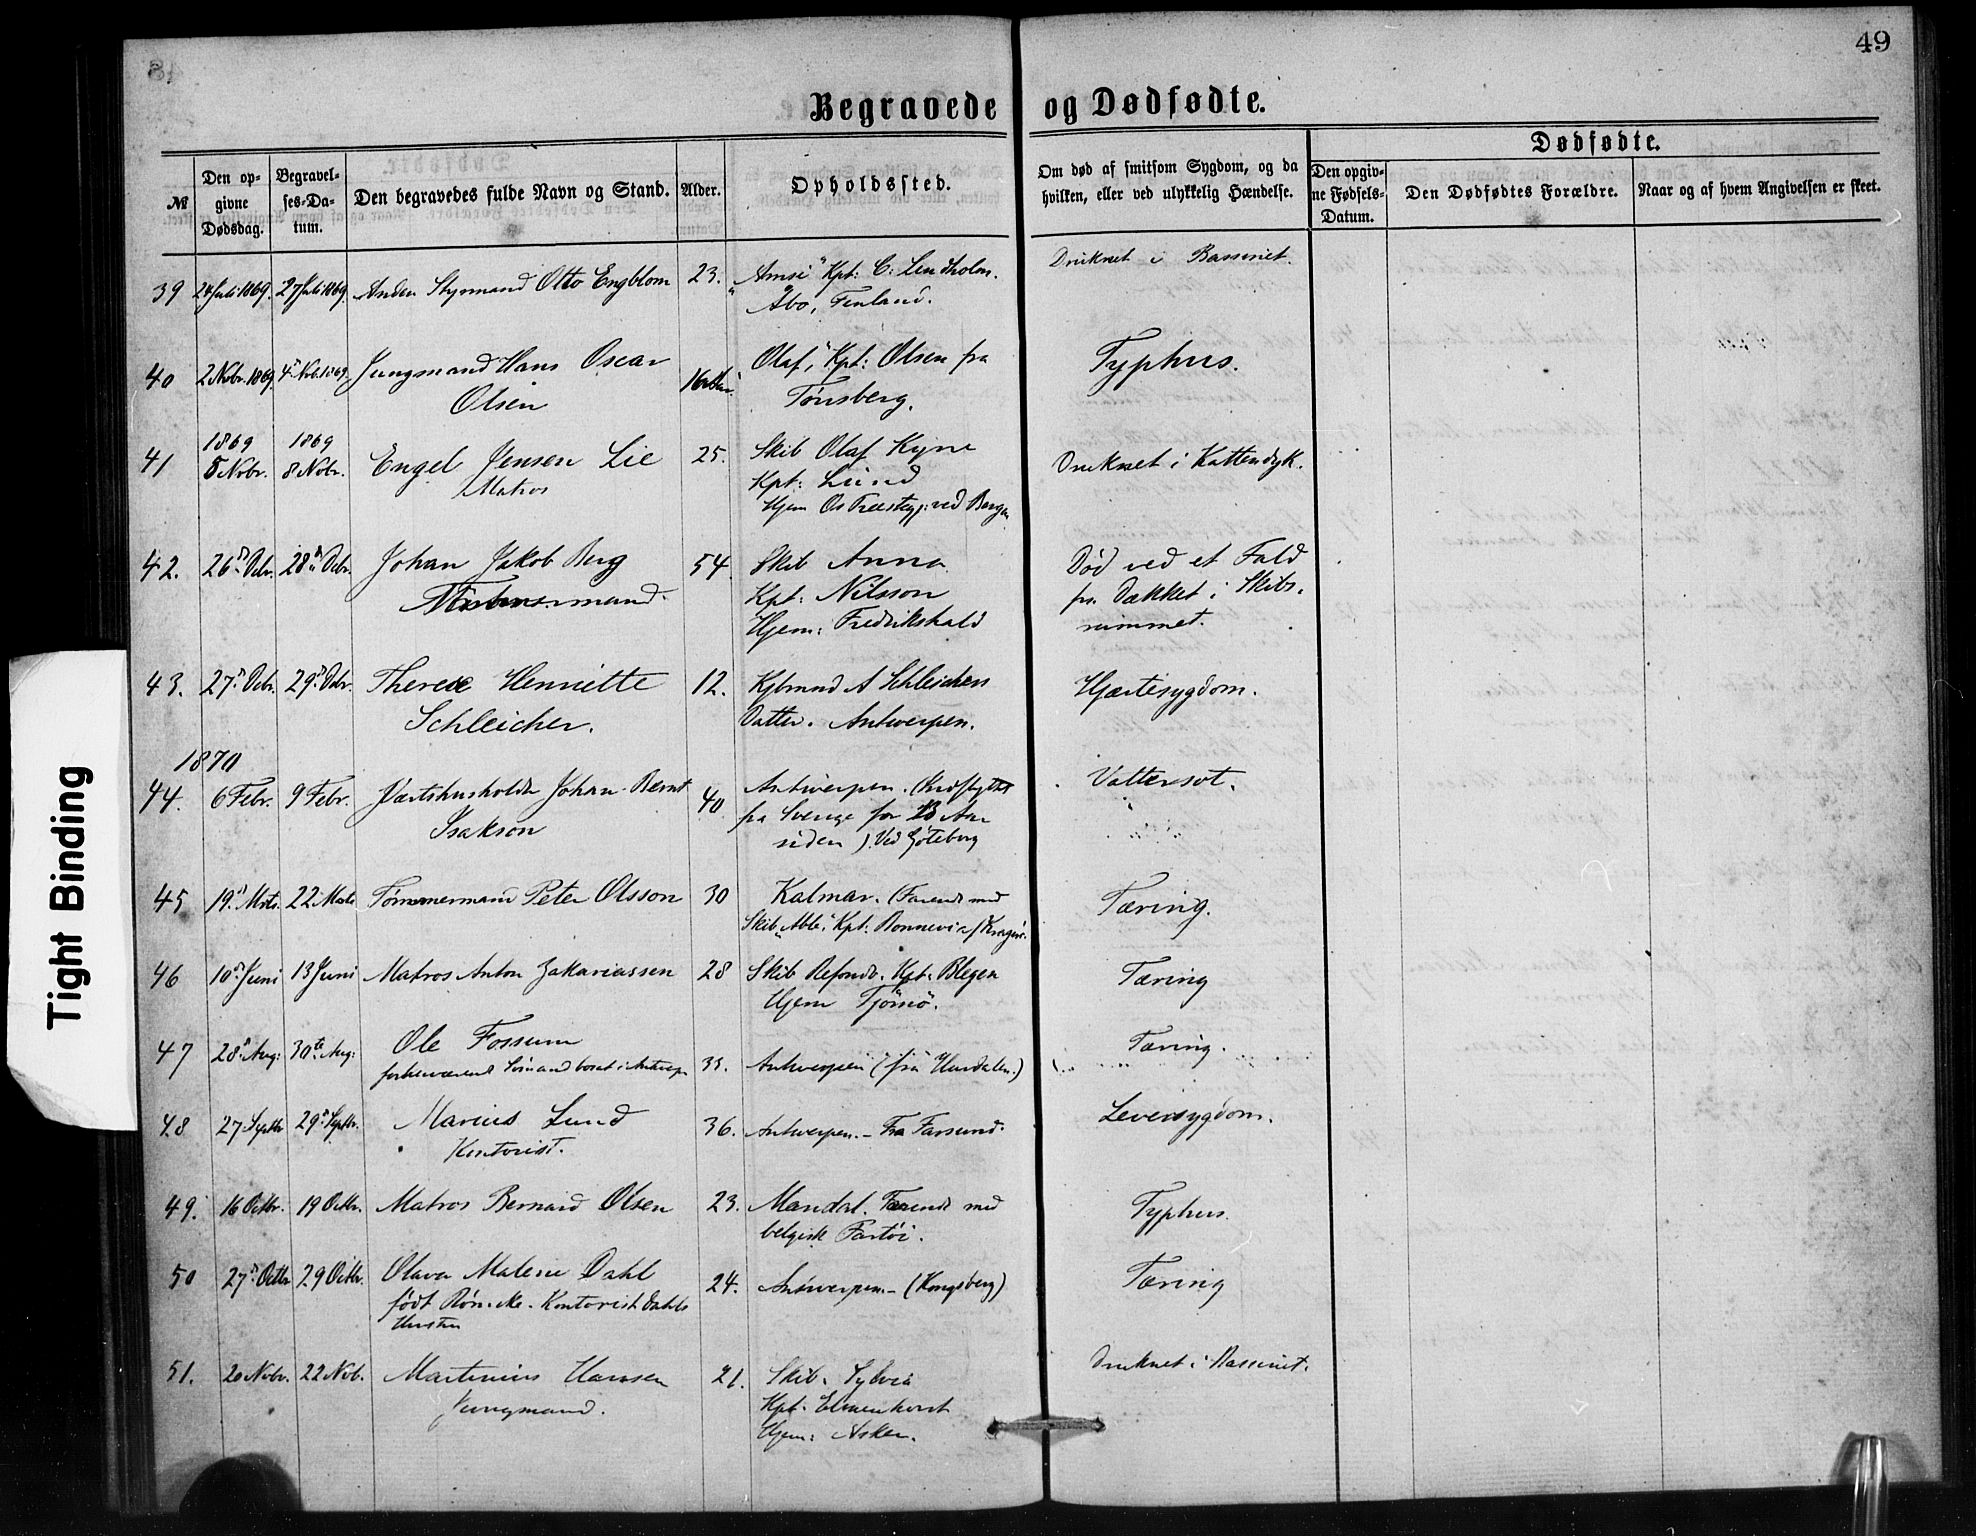 49
Begravede og Dødfødte.
№
Den opgivne Dødsdag.
Begravelses-Datum.
Den begravedes fulde Navn og Stand.
Alder.
Opholdssted.
Om død af smitsom Sygdom, og da hvilken, eller ved ulykkelig Hændelse.
Dødfødte.
Den opgivne Fødsels-Datum.
Den Dødfødtes Forældre.
Naar og af hvem Angivelsen er skeet.
39 24 Juli 1869. 27 Juli 1869 Anden Styrmand Otto Engblom 23. Kpt: C. Lindholm. Druknet i Bassinet.
Åbo, Finland.
40 2 Nobr. 1869 4 Nob. 1869 Jungmand Hans Oscar Olaf, Kpt: Olsen fra Typhus.
Olsen 16 Tønsberg.
1869 1869
41 5 Nobr. 8 Nobr. Engel Jensen Lie 25. Skib Olaf Kyrre Druknet i Kattendyk.
Matros Kpt: Lund
Hjem Os ved Bergen
42. 26 Debr. 28 Debr. Johan Jakob Berg 54 Skib Anna Død ved et Fald
Kpt: Nilsson fra Dækket i Skibs-
Hjem: Fredrikshald rummet.
43. 27 Debr. 29 Debr. Therese Henriette 12. A Schleichers Hjertesygdom.
Schleicher. Datter. Antwerpen.
1870
44. 6 Febr. 9 Febr. Værtshusholder Johan Bernt 40 Antwerpen. (Indflyttet Vattersot.
Isakson fra Sverige for Aar
siden). Ved Göteborg
45 19 Mrts. 22 Mrts Tømmermand Peter Olsson 30 Kalmar. (Farende med Tæring.
Skib Kpt: Bonnevie / Kragerø
46 10 Juni 13 Juni Matros Anton Zakariassen 28 Skib Refondo. Kpt. Blegen Tæring
Hjem Tjömö.
47 28 Aug: 30te Aug: Ole Fossum Tæring.
forhenværende Sømand bosat i Antwerpen 33. Antwerpen (fra Hurdalen.)
48 27 Septbr 29 Septbr. Marius Lund 36. Antwerpen. - Fra Farsund. Leversygdom.
Kontorist.
49. 16 Octbr. 19 Octbr. Matros Bernard Olsen 23. Mandal. Farende med Typhus.
belgisk Fartöi.
50 27 Octbr 29 Octbr. Olava Malene Dahl 24. Antwerpen - (Kongsberg) Tæring
født Kontorist Dahls
Hustru
51. 20 Nobr. 22 Nob. Martinius Hansen 21. Skib. Sylvia Druknet i Bassinet.
Jungmand. Kpt. Elmenhorst
Hjem: Asker.
Tight Binding